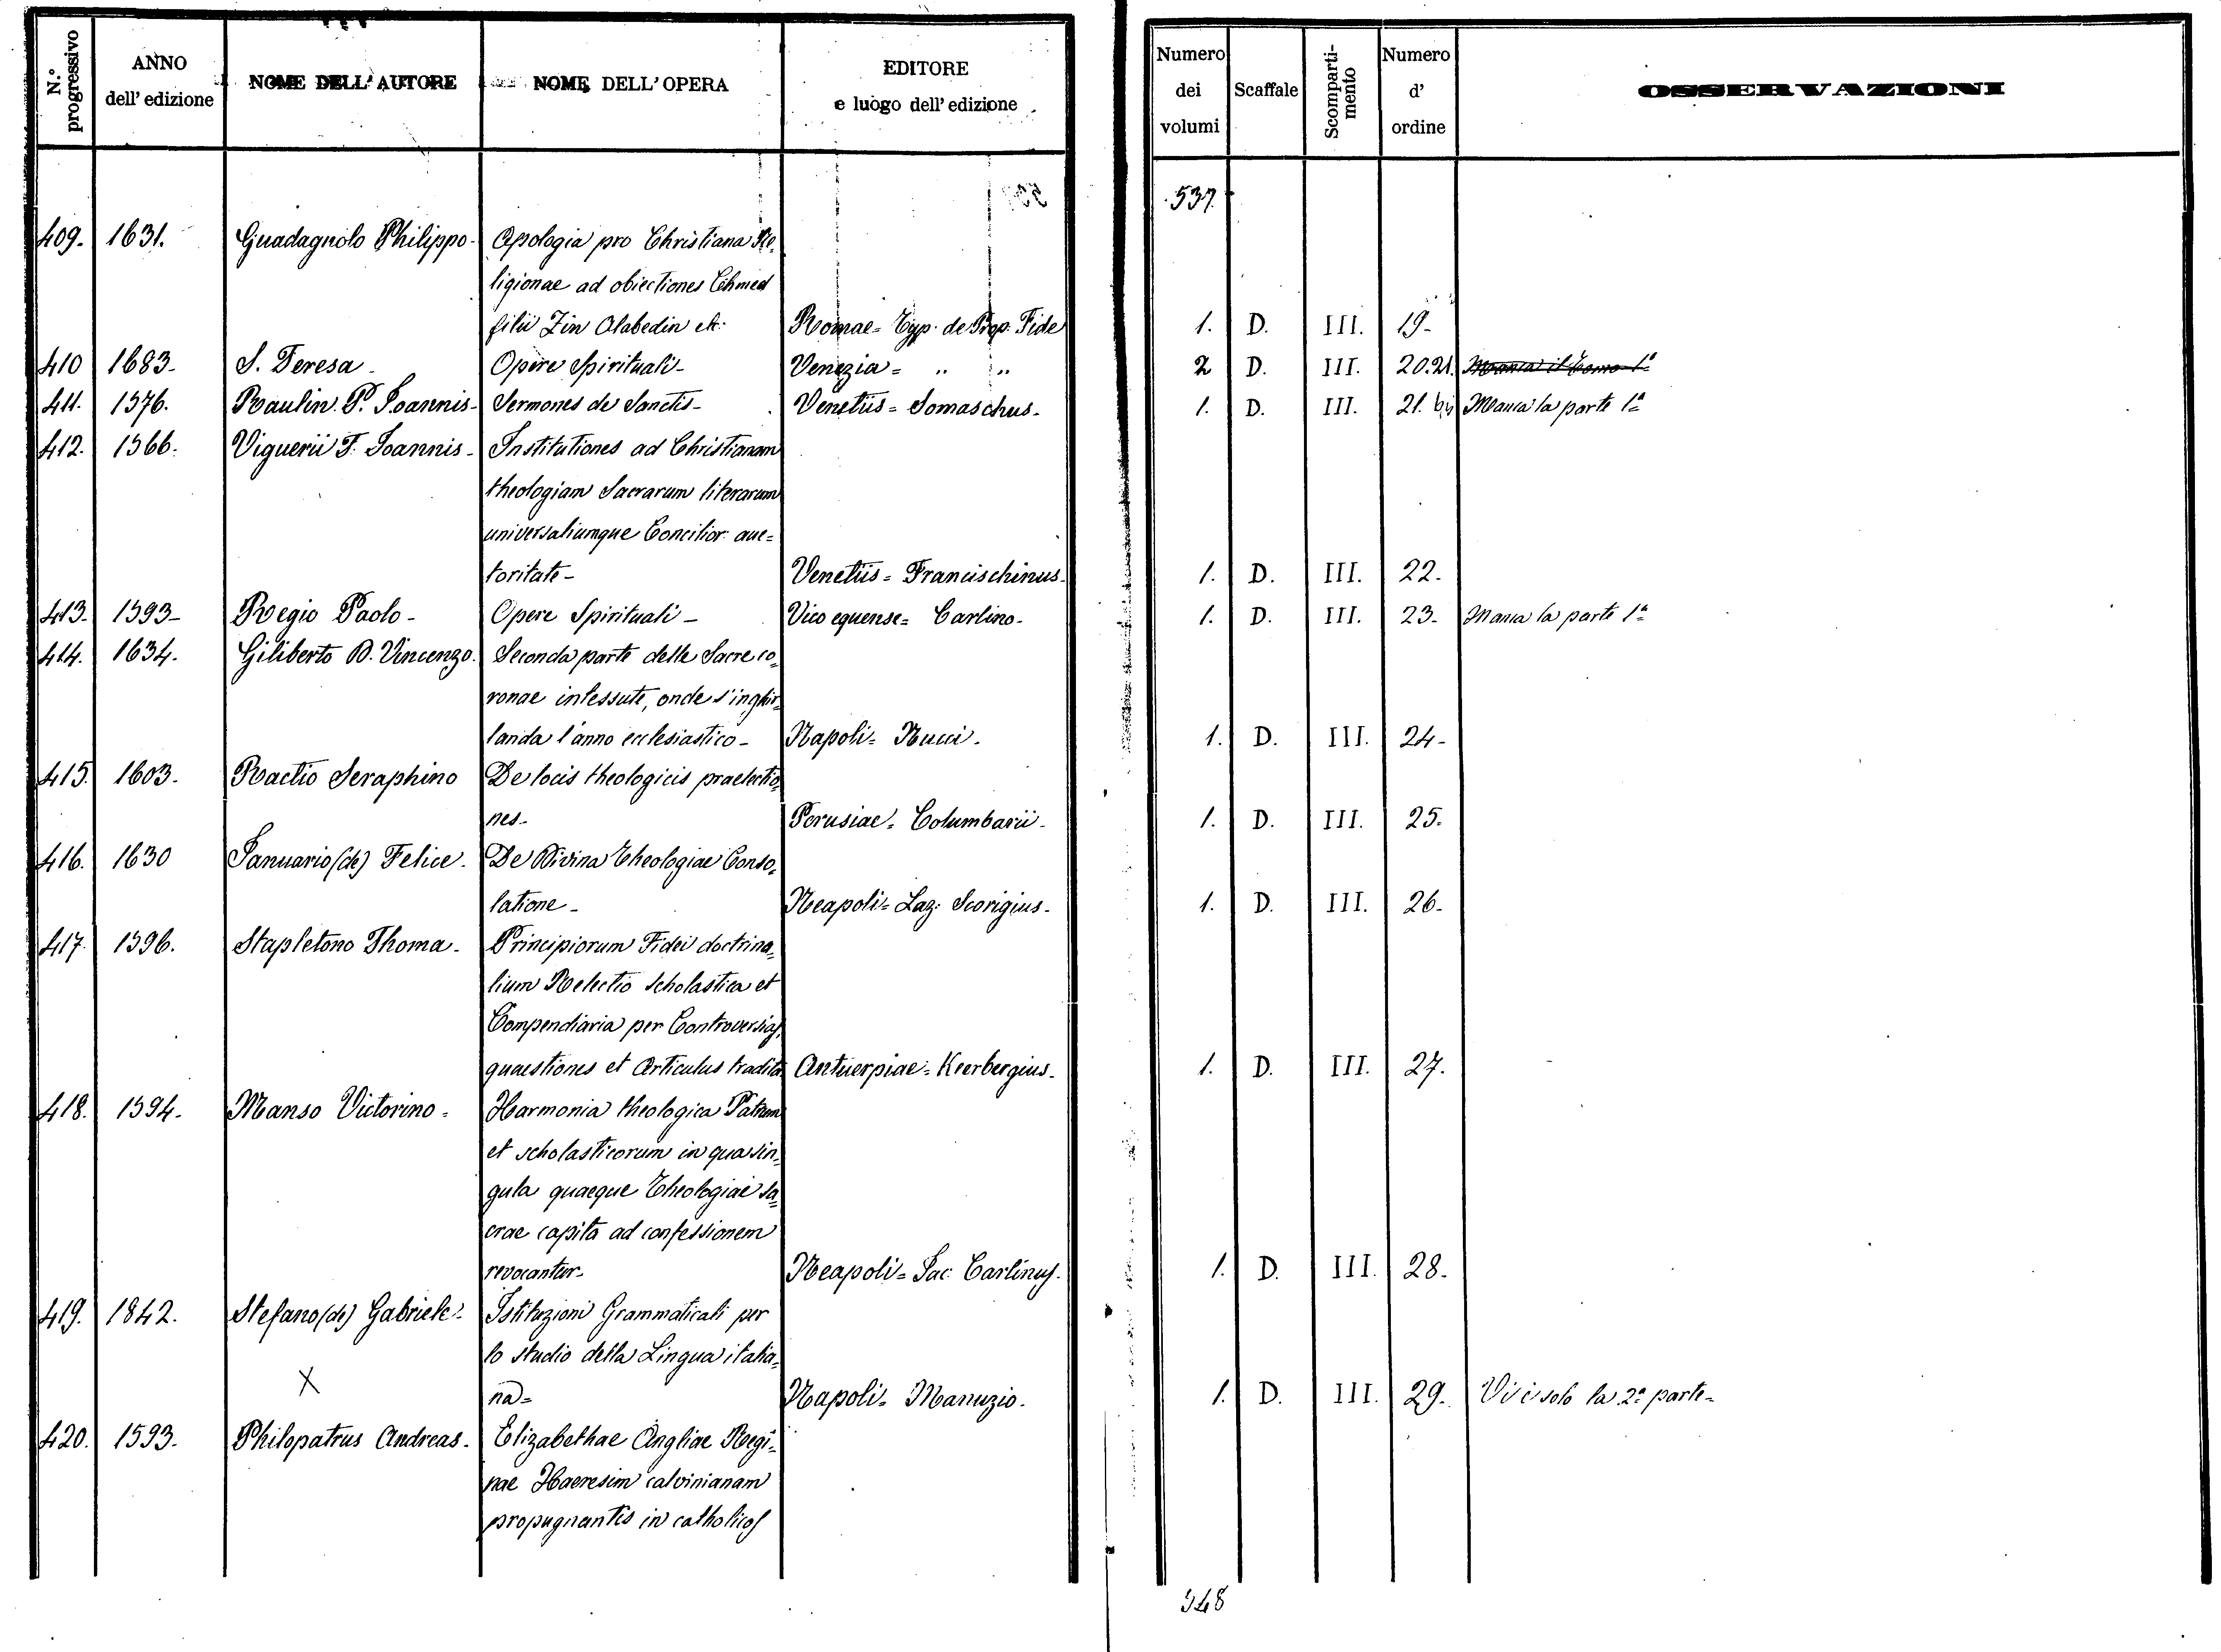 N.° progressivo | ANNO dell' edizione | NOME DELL' AUTORE | NOME DELL' OPERA | EDITORE e luogo dell' edizione | Numero dei volumi | Scaffale | Scomparti-mento | Numero d' ordine | OSSERVAZIONI
537.
409. 1631. Guadagnolo Philippo- Apologia pro Christiana Re=
ligionae ad obiectiones Ehmed
filii Zin Alabedin etc. Romae= Typ. de Prop. Fide 1. D. III. 19-
410 1683- S. Teresa- Opere Spirituali- Venezia= " " 2 D. III. 20.21. Manca il Tomo 1°
411. 1576. Raulin P. Joannis- Sermones de Sanctis- Venetiis= Somaschus. 1. D. III. 21. bis Manca la parte 1ª
412. 1566. Viguerii F. Joannis- Institutiones ad Christianam
theologiam Sacrarum literarum
universaliumque Concilior. auc=
toritate- Venetiis= Francischinus. 1. D. III. 22.
413- 1593- Regio Paolo- Opere Spirituali- Vico equense= Carlino- 1. D. III. 23- Manca la parte 1ª
414. 1634. Giliberto D. Vincenzo. Seconda parte delle Sacre co=
ronae intessute, onde s'inghir=
landa l'anno ecclesiastico- Napoli= Nucci. 1. D. III. 24-
415. 1603. Ractio Seraphino De locis theologicis praelectio=
nes- Perusiae= Columbarii- 1. D. III. 25.
416. 1630 Januario (de) Felice. De Divina Theologiae Conso=
latione- Neapoli= Laz. Scorigius. 1. D. III. 26-
417. 1596. Stapletono Thoma- Principiorum Fidei doctrina=
lium Relectio Scholastica et
Compendiaria per Controversias,
quaestiones et Articulus tradita Antuerpiae= Keerbergius. 1. D. III. 27.
418. 1594. Manso Victorino- Harmonia theologica Patrum
et scholasticorum in qua sin=
gula quaeque Theologiae Sa=
crae capita ad confessionem
revocantur- Neapoli= Jac. Carlinus. 1. D. III. 28.
419. 1842. Stefano (de) Gabriele- Istituzioni Grammaticali per
lo studio della Lingua italia=
X na= Napoli= Manuzio. 1. D. III. 29. Vi è solo la 2ª parte-
420. 1593. Philopatrus Andreas. Elizabethae Angliae Regi=
nae Haeresim calvinianam
propugnantis in catholicos
548